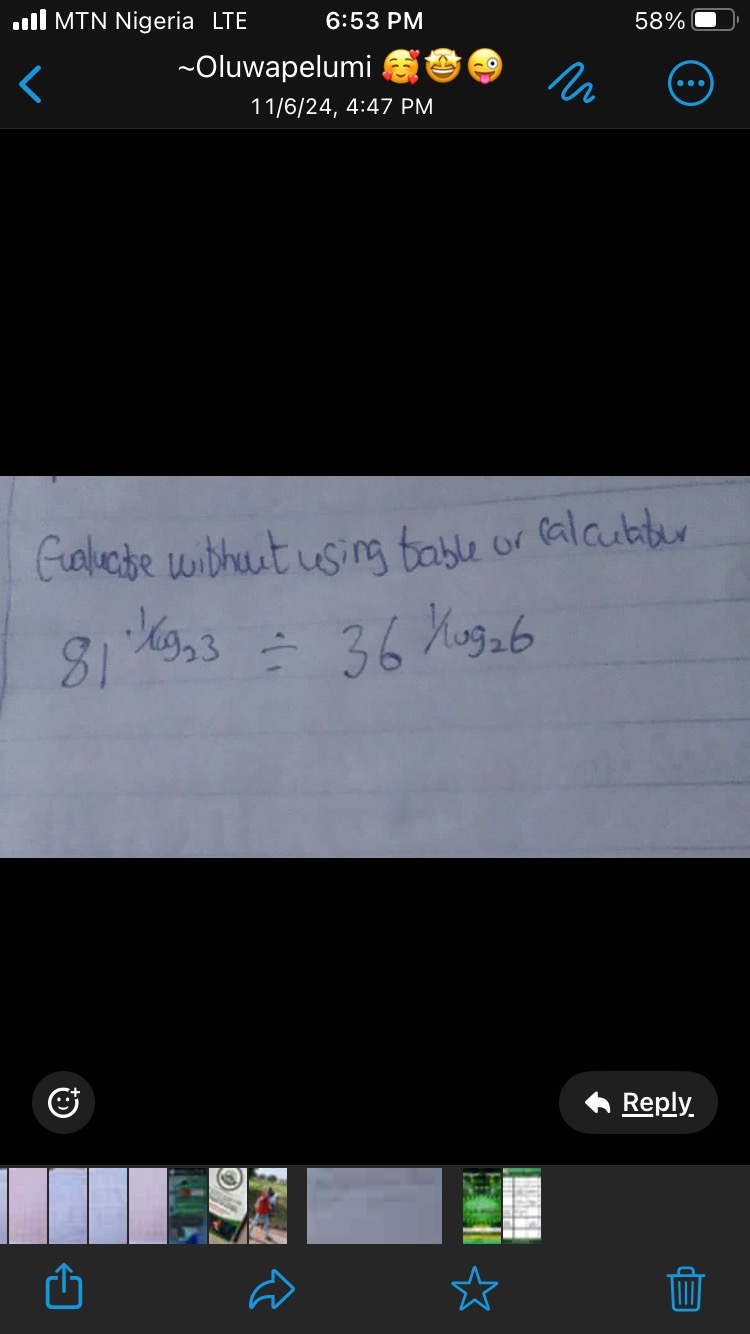 MTN Nigeria LTE 6:53 PM 58%
~Oluwapelumi 🥰🤩😜
11/6/24, 4:47 PM
Evaluate without using table or calculator
81^1/log₂3 ÷ 36^1/log₂6
Reply